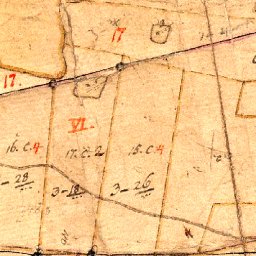 17
17.
VI.
16.C.4 17.C.2 15.C.4
-28 3-18 3-26